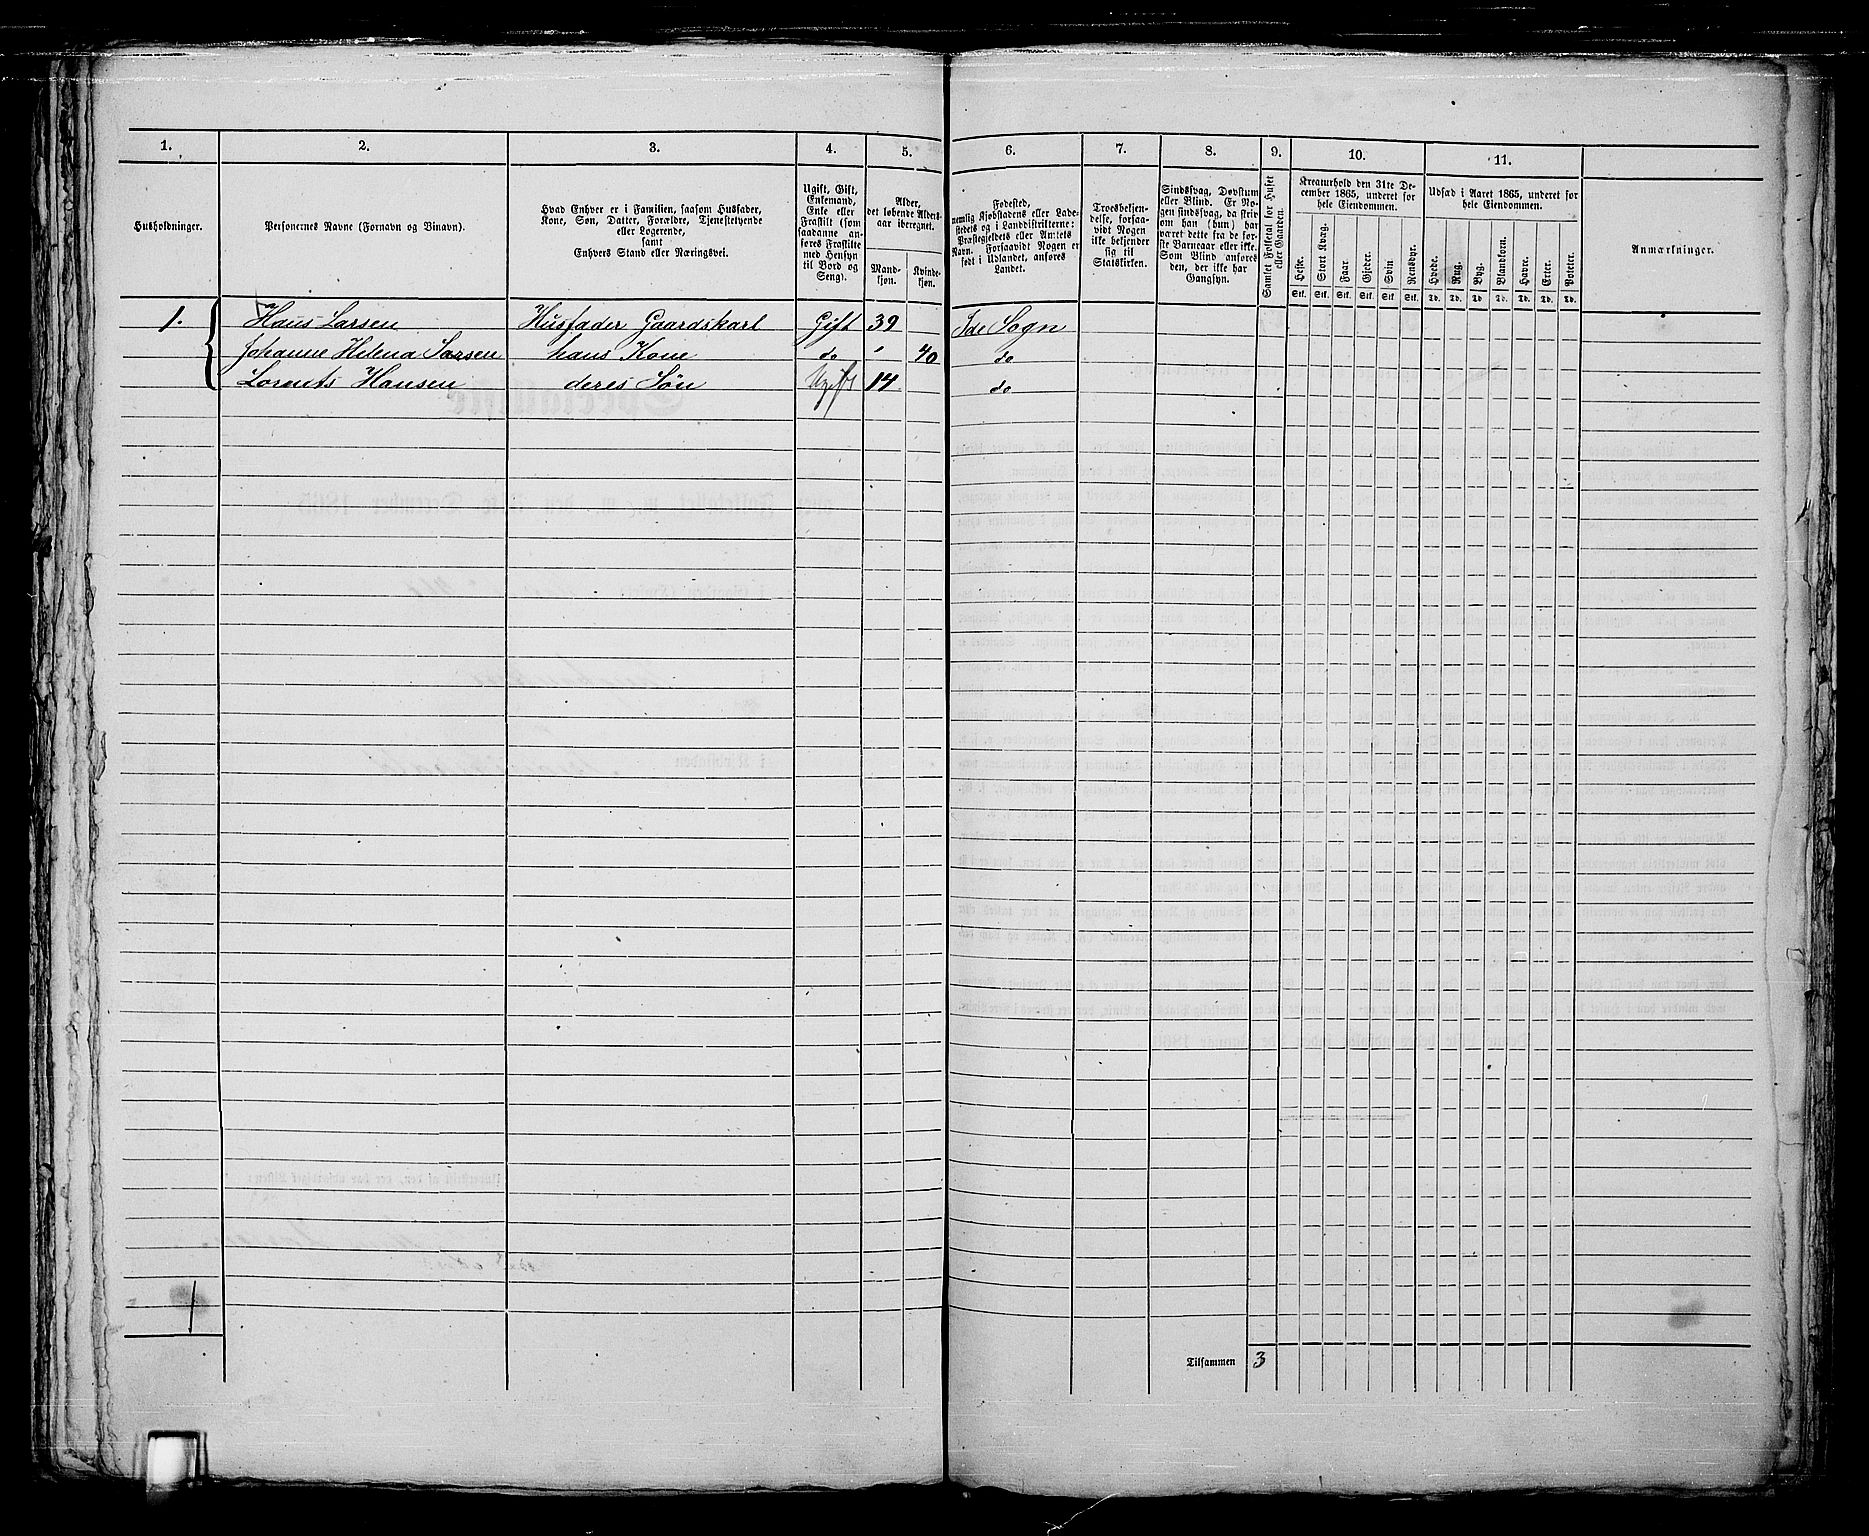 1. 2. 3. 4. 5. 6. 7. 8. 9. 10. 11.
Husholdninger.
Personernes Navne (Fornavn og Binavn).
Hvad Enhver er i Familien, saasom Husfader,
Kone, Søn, Datter, Forældre, Tjenestetyende
eller Logerende,
samt
Enhvers Stand eller Næringsvei.
Ugift, Gift,
Enkemand,
Enke eller
Fraskilt (som
saadanne an-
føres Fraskilte
med Hensyn
til Bord og
Seng).
Alder,
det løbende Alders-
aar iberegnet.
Mand-
kjøn.
Kvinde-
kjøn.
Fødested,
nemlig Kjøbstadens eller Lade-
stedets og i Landdistrikterne:
Præstegjeldets eller Amtets
Navn. Forsaavidt Nogen er
født i Udlandet, anføres
Landet.
Troesbekjen-
delse, forsaa-
vidt Nogen
ikke bekjender
sig til
Statskirken.
Sindssvag, Døvstum
eller Blind. Er No-
gen sindssvag, da skriv
om han (hun) har
været dette fra de før-
ste Barneaar eller ikke.
Som Blind anføres
den, der ikke har
Gangsyn.
Samlet Folketal for Huset
eller Gaarden.
Kreaturhold den 31te De-
cember 1865, underet for
hele Eiendommen.
Heste. Stort Kvæg. Faar. Gjeder. Svin. Rensdyr.
Stk. Stk. Stk. Stk. Stk. Stk.
Udsæd i Aaret 1865, underet for
hele Eiendommen.
Hvede. Rug. Byg. Blandkorn. Havre. Erter. Poteter.
Td. Td. Td. Td. Td. Td. Td.
Anmærkninger.
1. Hans Larsen Husfader Gaardskarl Gift 39 Ide Sogn
Johanne Helena Larsen hans Kone do " 40 do
Lorents Hansen deres Søn Ugift 14 do
1
Tilsammen 3